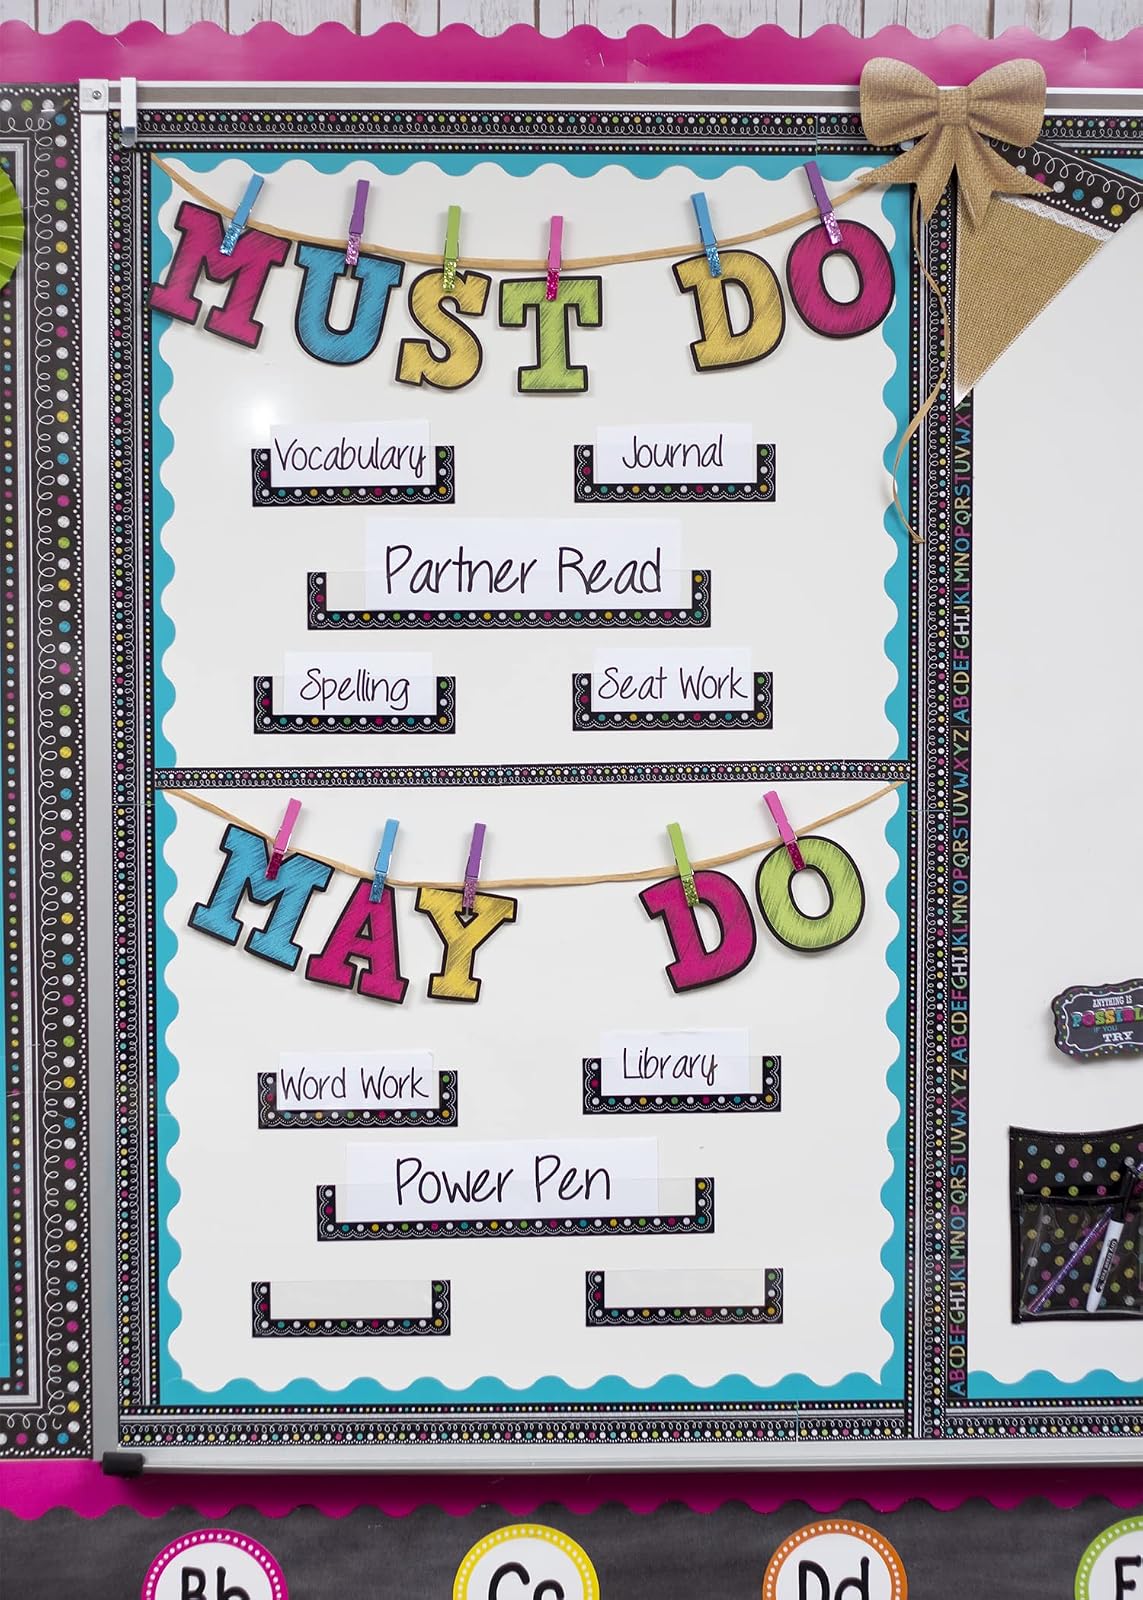 MUST DO
Vocabulary
Journal
Partner Read
Spelling
Seat Work
MAY DO
Word Work
Library
Power Pen
ABCDEFGHIJKLMNOPQRSTUVWXYZ ABCDEFGHIJKLMNOPQRSTUVWXYZ ABCDEFGHIJKLMNOPQRSTUVWXY
ANYTHING IS
POSSIBLE
IF YOU
TRY
Bb
Cc
Dd